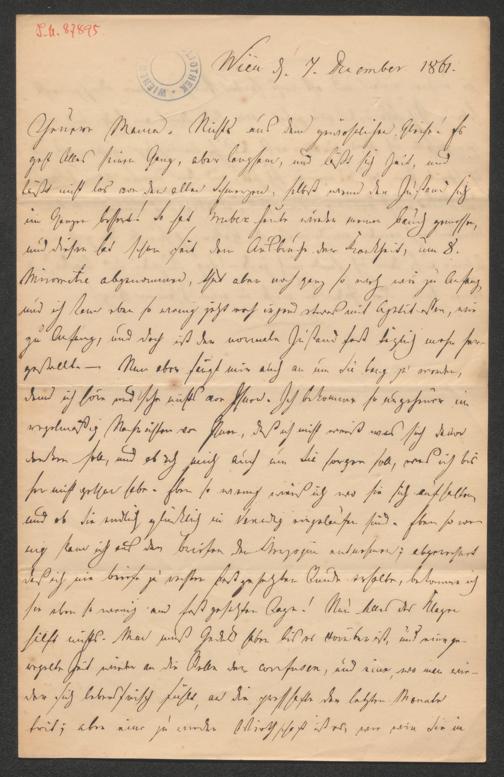 I.N. 87895
Wien d. 7. Dezember 1861.
Theuere Mama. Nichts aus dem gewöhnlichen Gleise! Es
geht Alles seinen Gang, aber langsam, und läßt sich Zeit, und
läßt nicht los von den alten Schmerzen, selbst wenn der Zustand sich
im Ganzen bessert! So hat heute wieder meinen Bauch gemessen,
und dieser hat schon seit dem Ausbruche der Krankheit, um 8.
abgenommen, thut aber noch ganz so weh wie zu Anfang,
und ich kann eben so wenig jetzt noch irgend etwas mit Appetit essen, wie
zu Anfang, und doch ist der normale Zustand fast täglich mehr her-
gestellt — Nun aber fängt mir auch an um Sie bang zu werden,
denn ich höre und sehe nichts von Ihnen. Ich bekomme so ungeheuer un
regelmäßig Nachrichten von Ihnen, daß ich nicht weiß was ich davon
denken soll, und ob ich mich auch um Sie sorgen soll, was ich bis
her nicht gethan habe. Eben so wenig weiß ich wo Sie sich aufhalten
und ob Sie endlich glücklich in Venedig eingelaufen sind. Eben so we-
nig kann ich aus den Briefen der entnehmen; abgerechnet
daß ich nie Briefe zu festgesetzten Stunde erhalte, bekomme ich
sie eben so wenig am festgesetzten Tage! Nu! Alles das Klagen
hilft nichts. Man muß Geduld haben bis es vorüber ist, und eine ge-
regelte Zeit wieder an die Stelle der confusen, und eine, wo man wie-
der sich lebensfrisch fühlt, an die der letzten Monate
tritt; aber eine ist es, wie Sie in